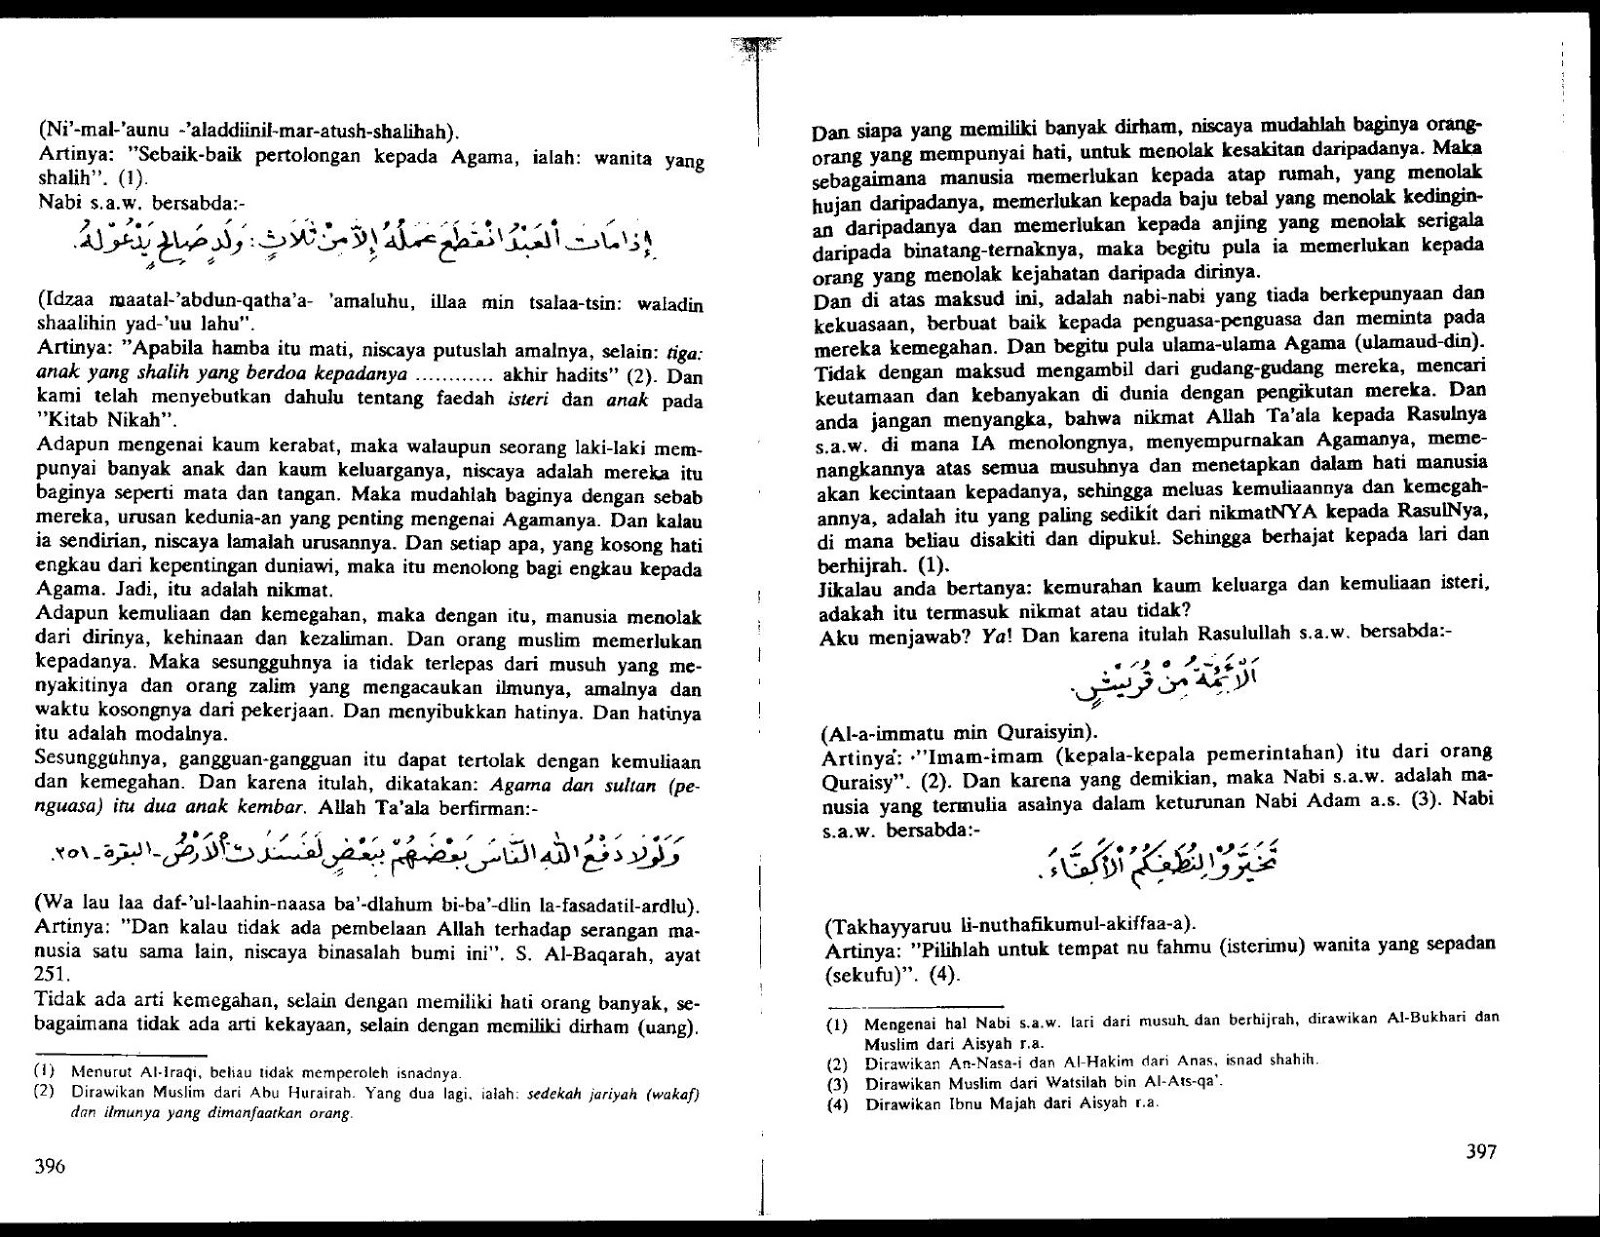 (Ni'-mal-'aunu -'aladdiinil-mar-atush-shalihah).
Artinya: "Sebaik-baik pertolongan kepada Agama, ialah: wanita yang
shalih". (1).
Nabi s.a.w. bersabda:-
إِذَامَاتَ الْعَبْدُ انْقَطَعَ عَمَلُهُ إِلاَّ مِنْ ثَلَاثٍ: وَلَدٍ صَالِحٍ يَدْعُوْلَهُ.
(Idzaa maatal-'abdun-qatha'a- 'amaluhu, illaa min tsalaa-tsin: waladin
shaalihin yad-'uu lahu".
Artinya: "Apabila hamba itu mati, niscaya putuslah amalnya, selain: tiga:
anak yang shalih yang berdoa kepadanya ............ akhir hadits" (2). Dan
kami telah menyebutkan dahulu tentang faedah isteri dan anak pada
"Kitab Nikah".
Adapun mengenai kaum kerabat, maka walaupun seorang laki-laki mem-
punyai banyak anak dan kaum keluarganya, niscaya adalah mereka itu
baginya seperti mata dan tangan. Maka mudahlah baginya dengan sebab
mereka, urusan kedunia-an yang penting mengenai Agamanya. Dan kalau
ia sendirian, niscaya lamalah urusannya. Dan setiap apa, yang kosong hati
engkau dari kepentingan duniawi, maka itu menolong bagi engkau kepada
Agama. Jadi, itu adalah nikmat.
Adapun kemuliaan dan kemegahan, maka dengan itu, manusia menolak
dari dirinya, kehinaan dan kezaliman. Dan orang muslim memerlukan
kepadanya. Maka sesungguhnya ia tidak terlepas dari musuh yang me-
nyakitinya dan orang zalim yang mengacaukan ilmunya, amalnya dan
waktu kosongnya dari pekerjaan. Dan menyibukkan hatinya. Dan hatinya
itu adalah modalnya.
Sesungguhnya, gangguan-gangguan itu dapat tertolak dengan kemuliaan
dan kemegahan. Dan karena itulah, dikatakan: Agama dan sultan (pe-
nguasa) itu dua anak kembar. Allah Ta'ala berfirman:-
وَلَوْلَا دَفْعُ اللهِ النَّاسَ بَعْضَهُمْ بِبَعْضٍ لَفَسَدَتِ الْاَرْضُ - البقرة - ٢٥١.
(Wa lau laa daf-'ul-laahin-naasa ba'-dlahum bi-ba'-dlin la-fasadatil-ardlu).
Artinya: "Dan kalau tidak ada pembelaan Allah terhadap serangan ma-
nusia satu sama lain, niscaya binasalah bumi ini". S. Al-Baqarah, ayat
251.
Tidak ada arti kemegahan, selain dengan memiliki hati orang banyak, se-
bagaimana tidak ada arti kekayaan, selain dengan memiliki dirham (uang).
(1) Menurut Al-Iraqi, beliau tidak memperoleh isnadnya.
(2) Dirawikan Muslim dari Abu Hurairah. Yang dua lagi, ialah: sedekah jariyah (wakaf)
dan ilmunya yang dimanfaatkan orang.
396
Dan siapa yang memiliki banyak dirham, niscaya mudahlah baginya orang-
orang yang mempunyai hati, untuk menolak kesakitan daripadanya. Maka
sebagaimana manusia memerlukan kepada atap rumah, yang menolak
hujan daripadanya, memerlukan kepada baju tebal yang menolak kedingin-
an daripadanya dan memerlukan kepada anjing yang menolak serigala
daripada binatang-ternaknya, maka begitu pula ia memerlukan kepada
orang yang menolak kejahatan daripada dirinya.
Dan di atas maksud ini, adalah nabi-nabi yang tiada berkepunyaan dan
kekuasaan, berbuat baik kepada penguasa-penguasa dan meminta pada
mereka kemegahan. Dan begitu pula ulama-ulama Agama (ulamaud-din).
Tidak dengan maksud mengambil dari gudang-gudang mereka, mencari
keutamaan dan kebanyakan di dunia dengan pengikutan mereka. Dan
anda jangan menyangka, bahwa nikmat Allah Ta'ala kepada Rasulnya
s.a.w. di mana IA menolongnya, menyempurnakan Agamanya, meme-
nangkannya atas semua musuhnya dan menetapkan dalam hati manusia
akan kecintaan kepadanya, sehingga meluas kemuliaannya dan kemegah-
annya, adalah itu yang paling sedikit dari nikmatNYA kepada RasulNya,
di mana beliau disakiti dan dipukul. Sehingga berhajat kepada lari dan
berhijrah. (1).
Jikalau anda bertanya: kemurahan kaum keluarga dan kemuliaan isteri,
adakah itu termasuk nikmat atau tidak?
Aku menjawab? Ya! Dan karena itulah Rasulullah s.a.w. bersabda:-
اَلْأَئِمَّةُ مِنْ قُرَيْشٍ.
(Al-a-immatu min Quraisyin).
Artinya: "Imam-imam (kepala-kepala pemerintahan) itu dari orang
Quraisy". (2). Dan karena yang demikian, maka Nabi s.a.w. adalah ma-
nusia yang termulia asalnya dalam keturunan Nabi Adam a.s. (3). Nabi
s.a.w. bersabda:-
تَخَيَّرُوْا لِنُطَفِكُمُ الْأَكِفَّاءَ.
(Takhayyaruu li-nuthafikumul-akiffaa-a).
Artinya: "Pilihlah untuk tempat nu fahmu (isterimu) wanita yang sepadan
(sekufu)". (4).
(1) Mengenai hal Nabi s.a.w. lari dari musuh dan berhijrah, dirawikan Al-Bukhari dan
Muslim dari Aisyah r.a.
(2) Dirawikan An-Nasa-i dan Al-Hakim dari Anas, isnad shahih.
(3) Dirawikan Muslim dari Watsilah bin Al-Ats-qa'.
(4) Dirawikan Ibnu Majah dari Aisyah r.a.
397